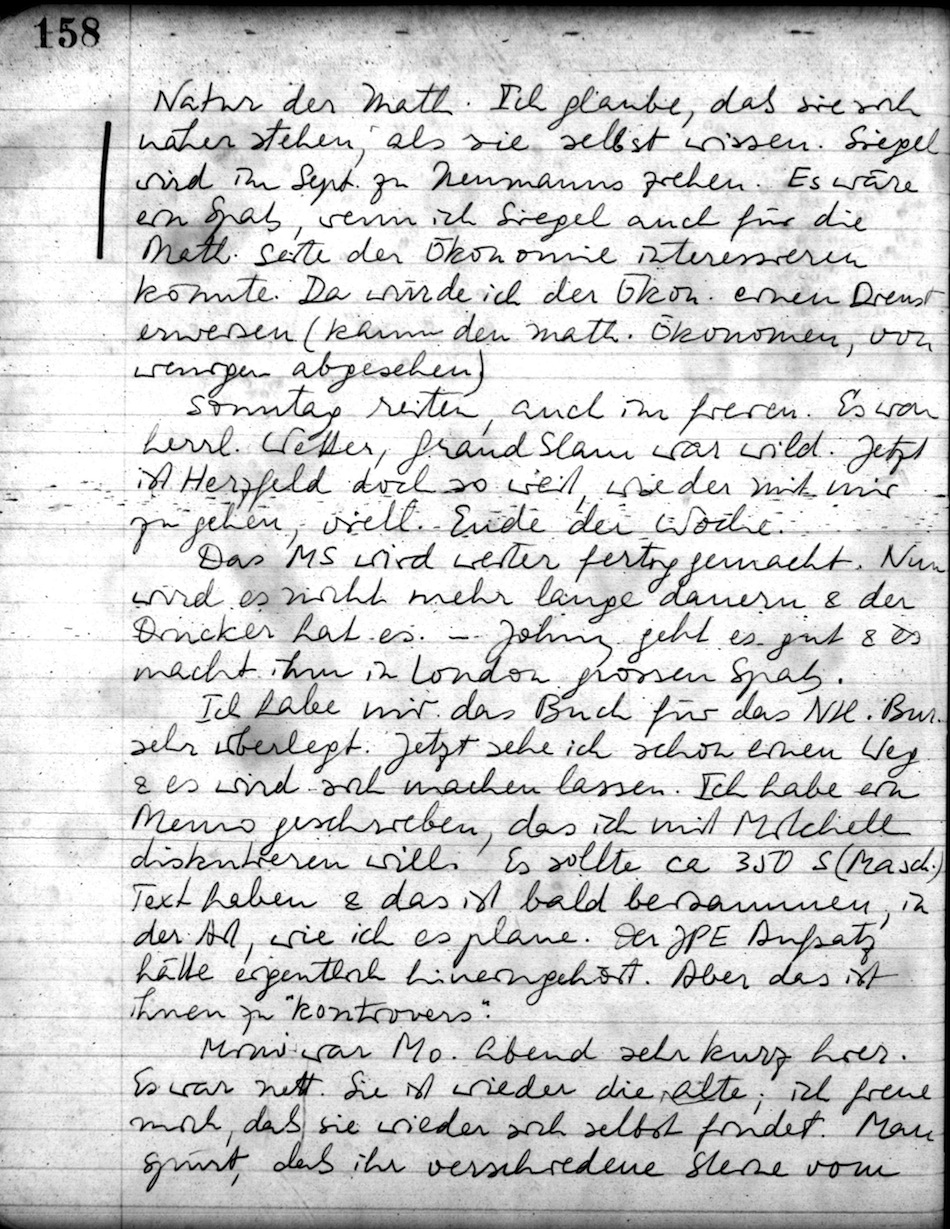 158
Natur der Math. Ich glaube, daß sie sich
näher stehen, als sie selbst wissen. Siegel
wird im Sept. zu Neumanns ziehen. Es wäre
ein Spaß, wenn ich Siegel auch für die
Math. Seite der Ökonomie interessieren
könnte. Da würde ich der Ökon. einen Dienst
erweisen (kaum den math. Ökonomen, von
wenigen abgesehen)
Sonntag reiten, auch im freien. Es war
herrl. Wetter, Grand Slam war wild. Jetzt
ist Herzfeld doch so weit, wieder mit mir
zu gehen, viell. Ende der Woche.
Das MS wird weiter fertig gemacht. Nun
wird es nicht mehr lange dauern & der
Drucker hat es. – Johnny geht es gut & es
macht ihm in London grossen Spaß.
Ich habe mir das Buch für das Nat. Bur.
sehr überlegt. Jetzt sehe ich schon einen Weg
& es wird sich machen lassen. Ich habe ein
Memo geschrieben, das ich mit Mitchell
diskutieren will. Es sollte ca 350 S (Masch.)
Text haben & das ist bald beisammen, in
der Art, wie ich es plane. Der JPE Aufsatz
hätte eigentlich hineingehört. Aber das ist
ihnen zu "kontrovers".
war Mo. Abend sehr kurz hier.
Es war nett. Sie ist wieder die alte; ich freue
mich, daß sie wieder sich selbst findet. Man
spürt, daß ihr verschiedene Steine vom